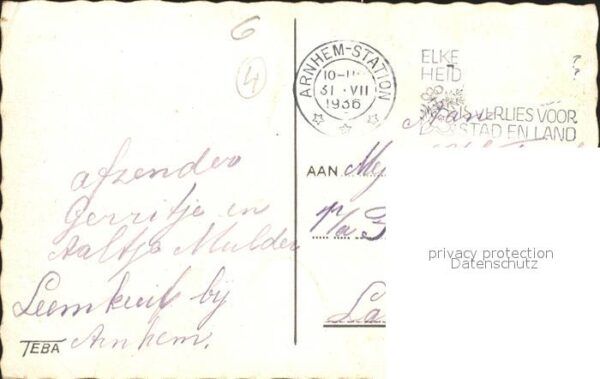 6
4
ARNHEM-STATION
10-11
31 .VII
1936
ELKE
HEID
?
?
IS VERLIES VOOR
STAD EN LAND
Aan
AAN
p/a 3
La
afzender
Gerritje en
Aaltje Mulder
Leemkuil bij
Arnhem.
TEBA
privacy protection
Datenschutz